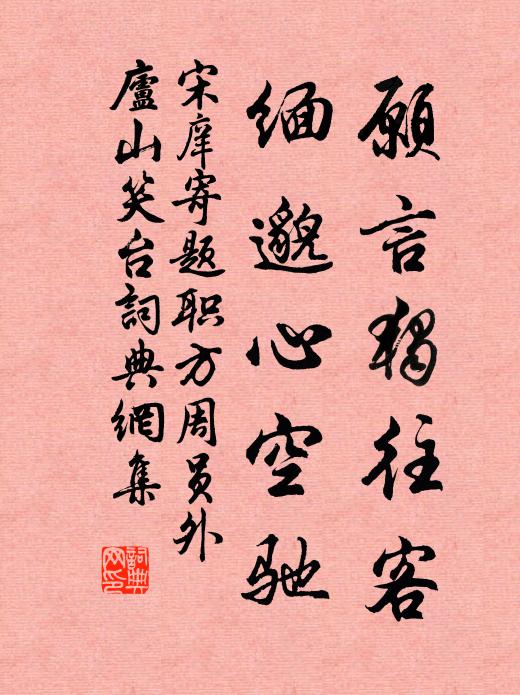 願言獨往客
緬邈心空馳
宋庠寄題职方周员外
廬山笑台詞典網集
詞典网印